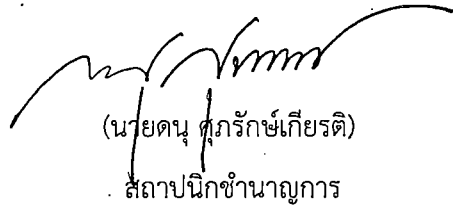 (นายดนุ ศุภรักษ์เกียรติ)
สถาปนิกชำนาญการ